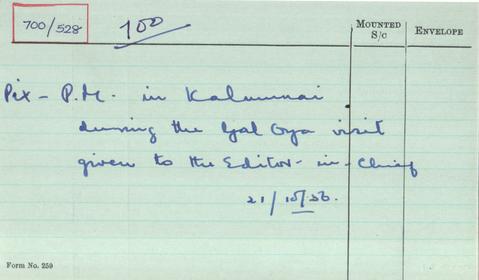 700/528
100
MOUNTED
S/C
ENVELOPE
Pix - P.M. in Kalmunai
during the Gal Oya visit
given to the Editor-in-Chief
21/10/56.
Form No. 259